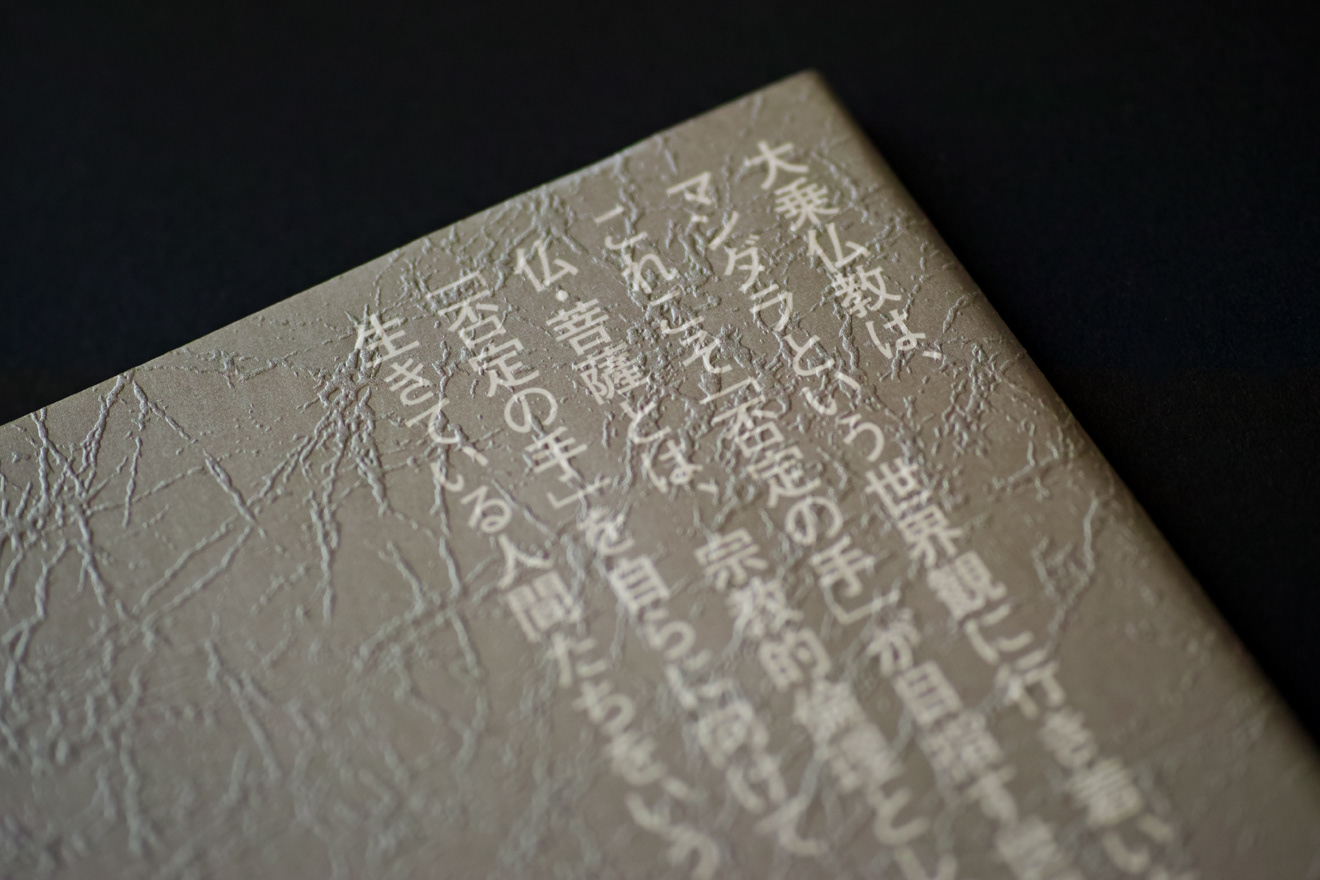 大乗仏教は、
マンダラという世界観に行き着い
これこそ「否定の手」が目指す
仏・菩薩とは、宗教的
「否定の手」を自らに向けて
生きている人間たちをいう